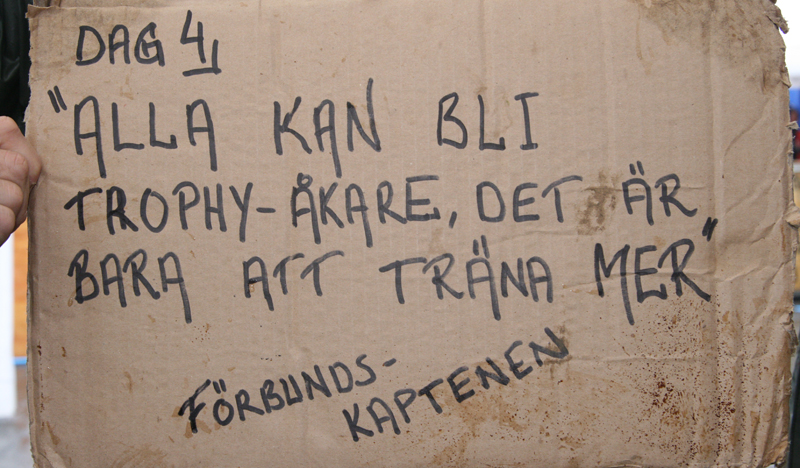 DAG 4
"ALLA KAN BLI
TROPHY-ÅKARE, DET ÄR
BARA ATT TRÄNA MER"
FÖRBUNDS-
KAPTENEN